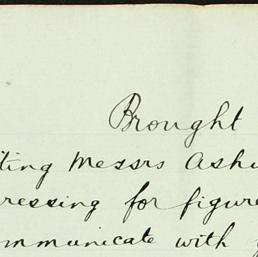 Brought
ting Messrs Ashu
ressing for figure
ommunicate with y